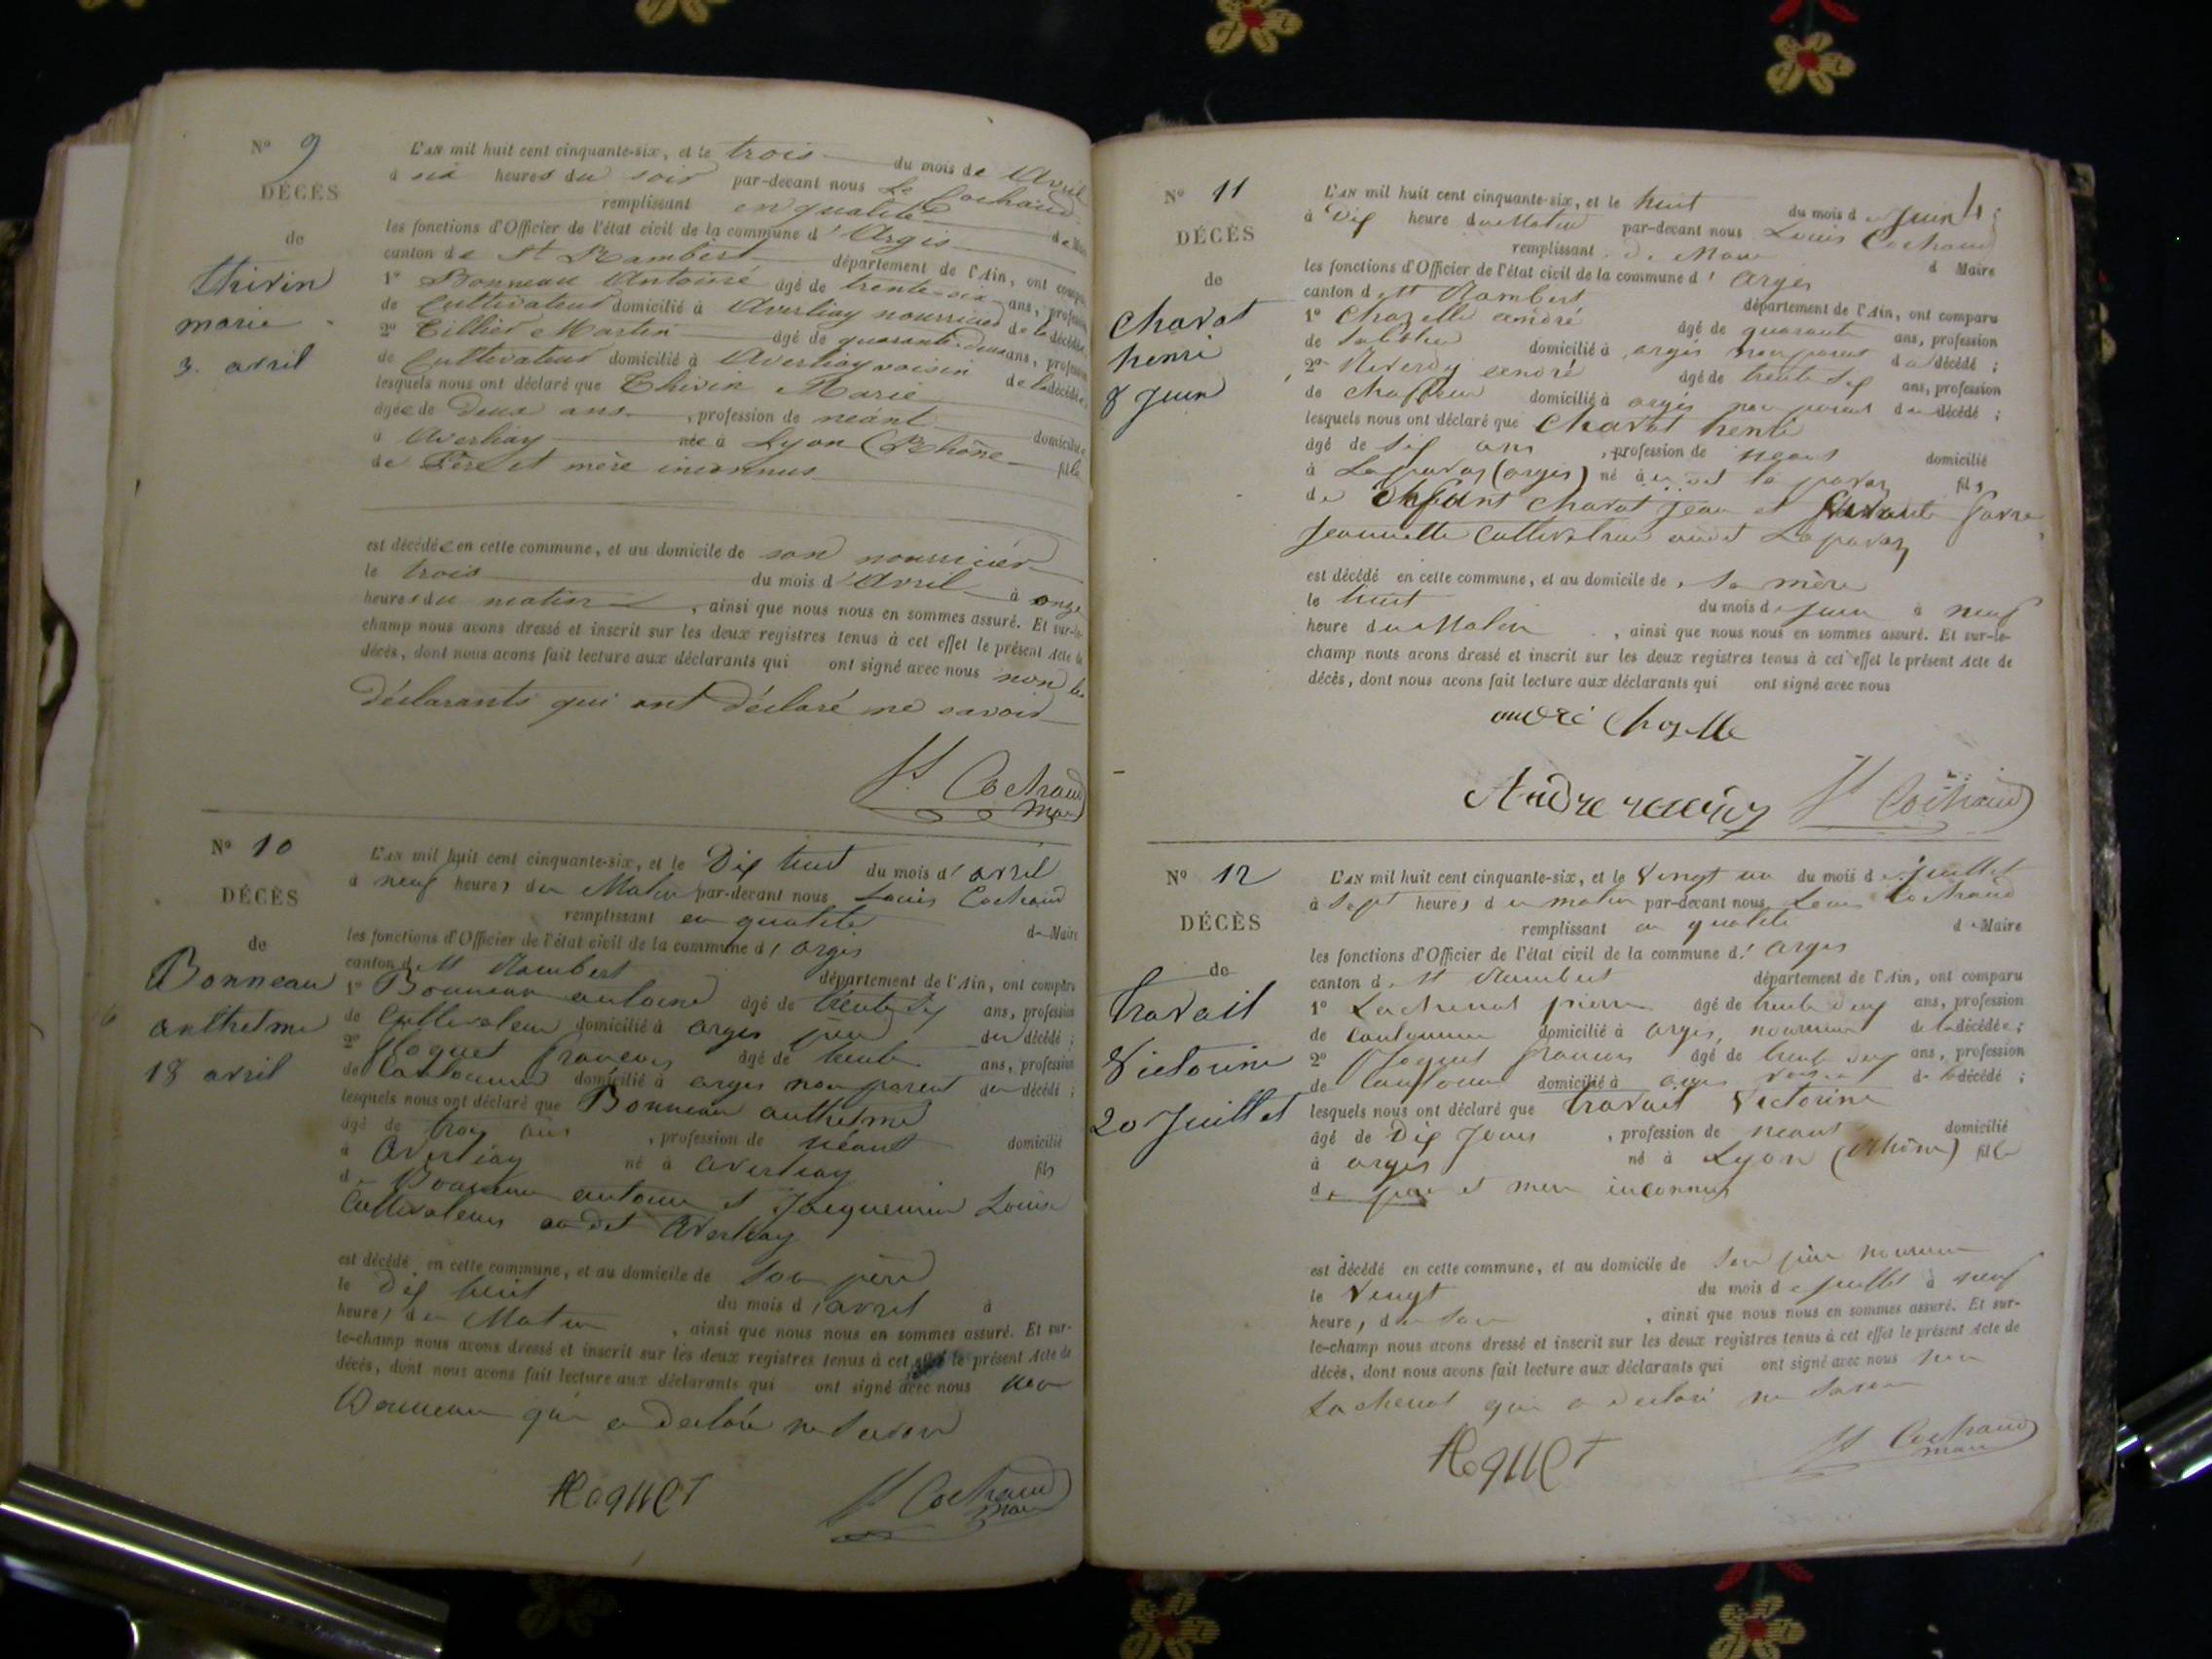 N° 9
DÉCÈS
de
thivin
marie
3. avril
L'AN mil huit cent cinquante-six, et le trois du mois de Avril
à six heures du soir par-devant nous Ls Cochaud
remplissant en qualité de Maire
les fonctions d'Officier de l'état civil de la commune d'Argis
canton de St Rambert département de l'Ain, ont comparu
1° Bonneau Antoine âgé de trente-six ans, profession
de Cultivateur domicilié à Averliay nourricier de la décédée
2° Tillier Martin âgé de quarante-deux ans, profession
de Cultivateur domicilié à Averliay voisin de la décédée
lesquels nous ont déclaré que Thivin Marie
âgée de Deux ans, profession de néant domiciliée
à Averliay née à Lyon (Rhône fille
de Père et mère inconnus
est décédée en cette commune, et au domicile de son nourricier
le trois du mois d'Avril à onze
heures du matin, ainsi que nous nous en sommes assuré. Et sur-le-
champ nous avons dressé et inscrit sur les deux registres tenus à cet effet le présent Acte de
décès, dont nous avons fait lecture aux déclarants qui ont signé avec nous non les
déclarants qui ont déclaré ne savoir
Ls Cochaud
maire
N° 10
DÉCÈS
de
Bonneau
anthelme
18 avril
L'AN mil huit cent cinquante-six, et le Dix huit du mois d'avril
à neuf heures du Matin par-devant nous Louis Cochaud
remplissant en qualité de Maire
les fonctions d'Officier de l'état civil de la commune d'argis
canton d St Rambert département de l'Ain, ont comparu
1° Bonneau antoine âgé de trente six ans, profession
de Cultivateur domicilié à argis père du décédé ;
2° Hoquet François âgé de trente ans, profession
de domicilié à argis non parent du décédé ;
lesquels nous ont déclaré que Bonneau anthelme
âgé de trois ans, profession de néant domicilié
à Averliay né à averliay fils
de Bonneau antoine et Jacquemin Louise
Cultivateurs au dit Averliay
est décédé en cette commune, et au domicile de son père
le Dix huit du mois d'avril à
heures du Matin, ainsi que nous nous en sommes assuré. Et sur-
le-champ nous avons dressé et inscrit sur les deux registres tenus à cet effet le présent Acte de
décès, dont nous avons fait lecture aux déclarants qui ont signé avec nous non
Bonneau qui a déclaré ne savoir
Hoquet Ls Cochaud
maire
N° 11
DÉCÈS
de
Chavat
henri
8 Juin
L'AN mil huit cent cinquante-six, et le huit du mois de Juin
à Dix heure du Matin par-devant nous Louis Cochaud
remplissant de Maire d Maire
les fonctions d'Officier de l'état civil de la commune d'argis
canton d St Rambert département de l'Ain, ont comparu
1° Chazelle andré âgé de quarante ans, profession
de domicilié à argis non parent du décédé ;
2° andré âgé de trente six ans, profession
de domicilié à argis non parent du décédé ;
lesquels nous ont déclaré que Chavat henri
âgé de six ans, profession de néant domicilié
à (argis) né au dit fils
de Chavat Jean et
Jeannette au dit
est décédé en cette commune, et au domicile de sa mère
le huit du mois de Juin à neuf
heure du Matin, ainsi que nous nous en sommes assuré. Et sur-le-
champ nous avons dressé et inscrit sur les deux registres tenus à cet effet le présent Acte de
décès, dont nous avons fait lecture aux déclarants qui ont signé avec nous
andré Chazelle
Andre Ls Cochaud
N° 12
DÉCÈS
de
travail
Victorine
20 Juillet
L'AN mil huit cent cinquante-six, et le Vingt un du mois de juillet
à Sept heures du matin par-devant nous Louis Cochaud
remplissant en qualité de Maire
les fonctions d'Officier de l'état civil de la commune d'argis
canton d St Rambert département de l'Ain, ont comparu
1° Lachenal pierre âgé de trente deux ans, profession
de domicilié à argis, nourricier de la décédée ;
2° Hoquet François âgé de trente deux ans, profession
de domicilié à argis voisin de la décédé ;
lesquels nous ont déclaré que travail Victorine
âgé de Dix Jours, profession de néant domicilié
à argis né à Lyon (Rhône) fille
de père et mère inconnus
est décédé en cette commune, et au domicile de son père nourricier
le Vingt du mois de juillet à neuf
heures du soir, ainsi que nous nous en sommes assuré. Et sur-
le-champ nous avons dressé et inscrit sur les deux registres tenus à cet effet le présent Acte de
décès, dont nous avons fait lecture aux déclarants qui ont signé avec nous non
Lachenal qui a déclaré ne savoir
Hoquet Ls Cochaud
maire